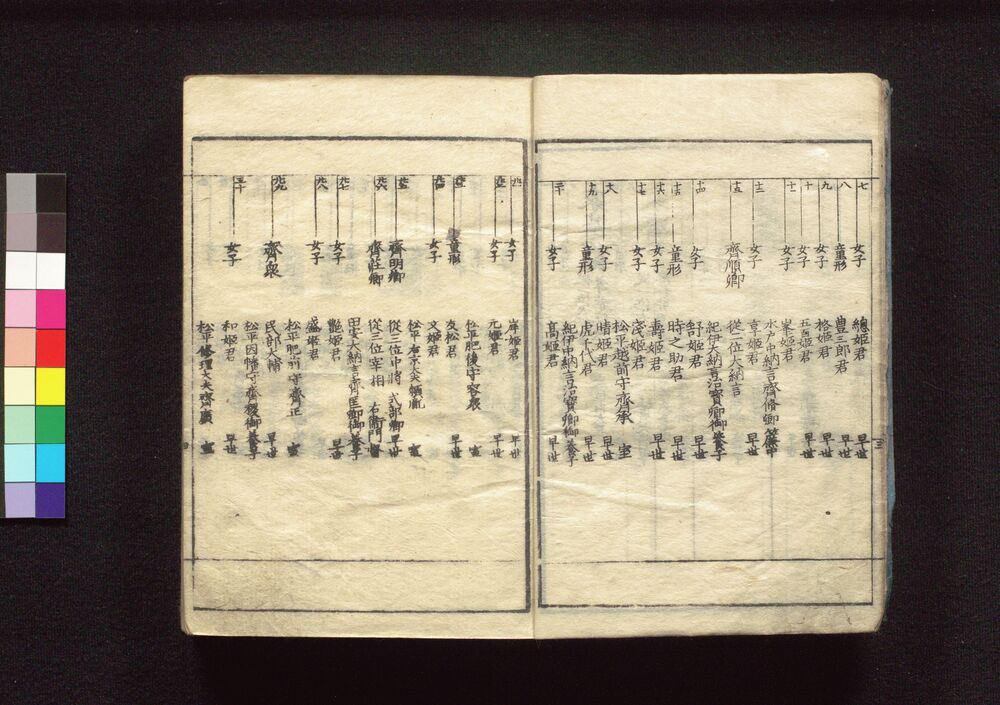 七
女子
總姫君
早世
八
童形
豊三郎君
早世
九
女子
格姫君
早世
十
女子
五百姫君
早世
十一
女子
峯姫君
水戸中納言齊脩卿御簾中
十二
女子
亨姫君
早世
十三
齊順卿
從二位大納言
紀伊大納言治寳卿御養子
十四
女子
舒姫君
早世
十五
童形
時之助君
早世
十六
女子
壽姫君
早世
十七
女子
淺姫君
松平越前守齊承
室
十八
女子
晴姫君
早世
十九
童形
虎千代君
早世
紀伊中納言治寳卿御養子
二十
女子
高姫君
早世
廿一
女子
岸姫君
早世
廿二
女子
元姫君
早世
松平肥後守容衆
室
廿三
童形
友松君
早世
廿四
女子
文姫君
松平左京大夫頼胤
室
廿五
齊明卿
從三位中將式部卿
早世
廿六
齊莊卿
從三位宰相
右衛門督
田安大納言齊匡卿御養子
廿七
女子
艶姫君
早世
廿八
女子
盛姫君
松平肥前守齊正
室
廿九
齊衆
民部大輔
早世
松平因幡守齊稷御養子
三十
女子
和姫君
早世
松平修理大夫齊廣
室
三
四